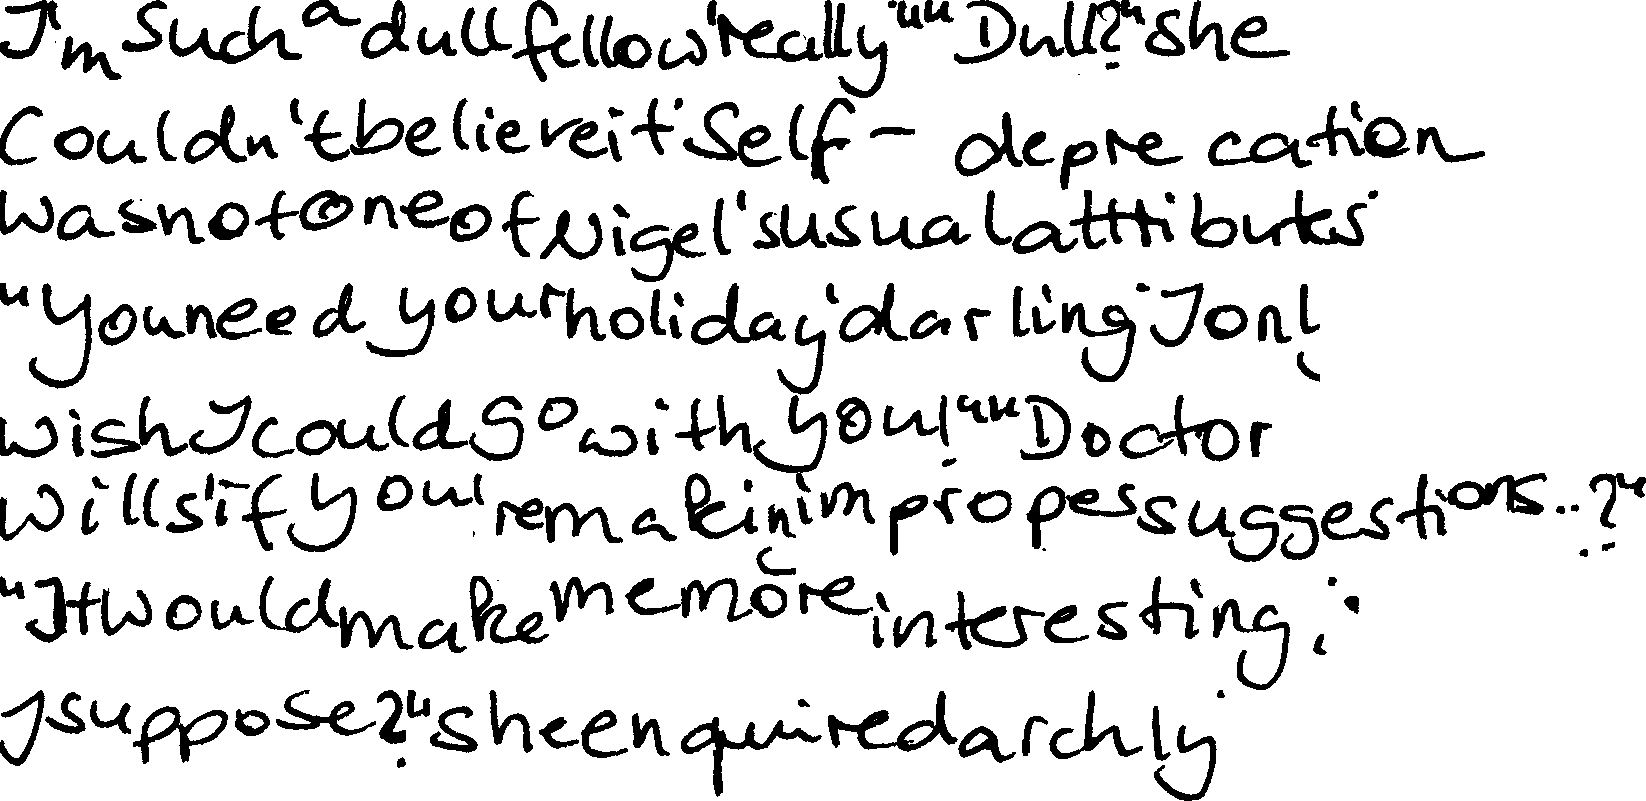 I'm such a dull fellow really." "Dull?" she
couldn't believe it. Self-deprecation
was not one of Nigel's usual attributes.
"You need your holiday, darling. I only
wish I could go with you!" "Doctor
Wills, if you're makin' improper suggestions..?"
"It would make me more interesting,
I suppose?" she enquired archly.